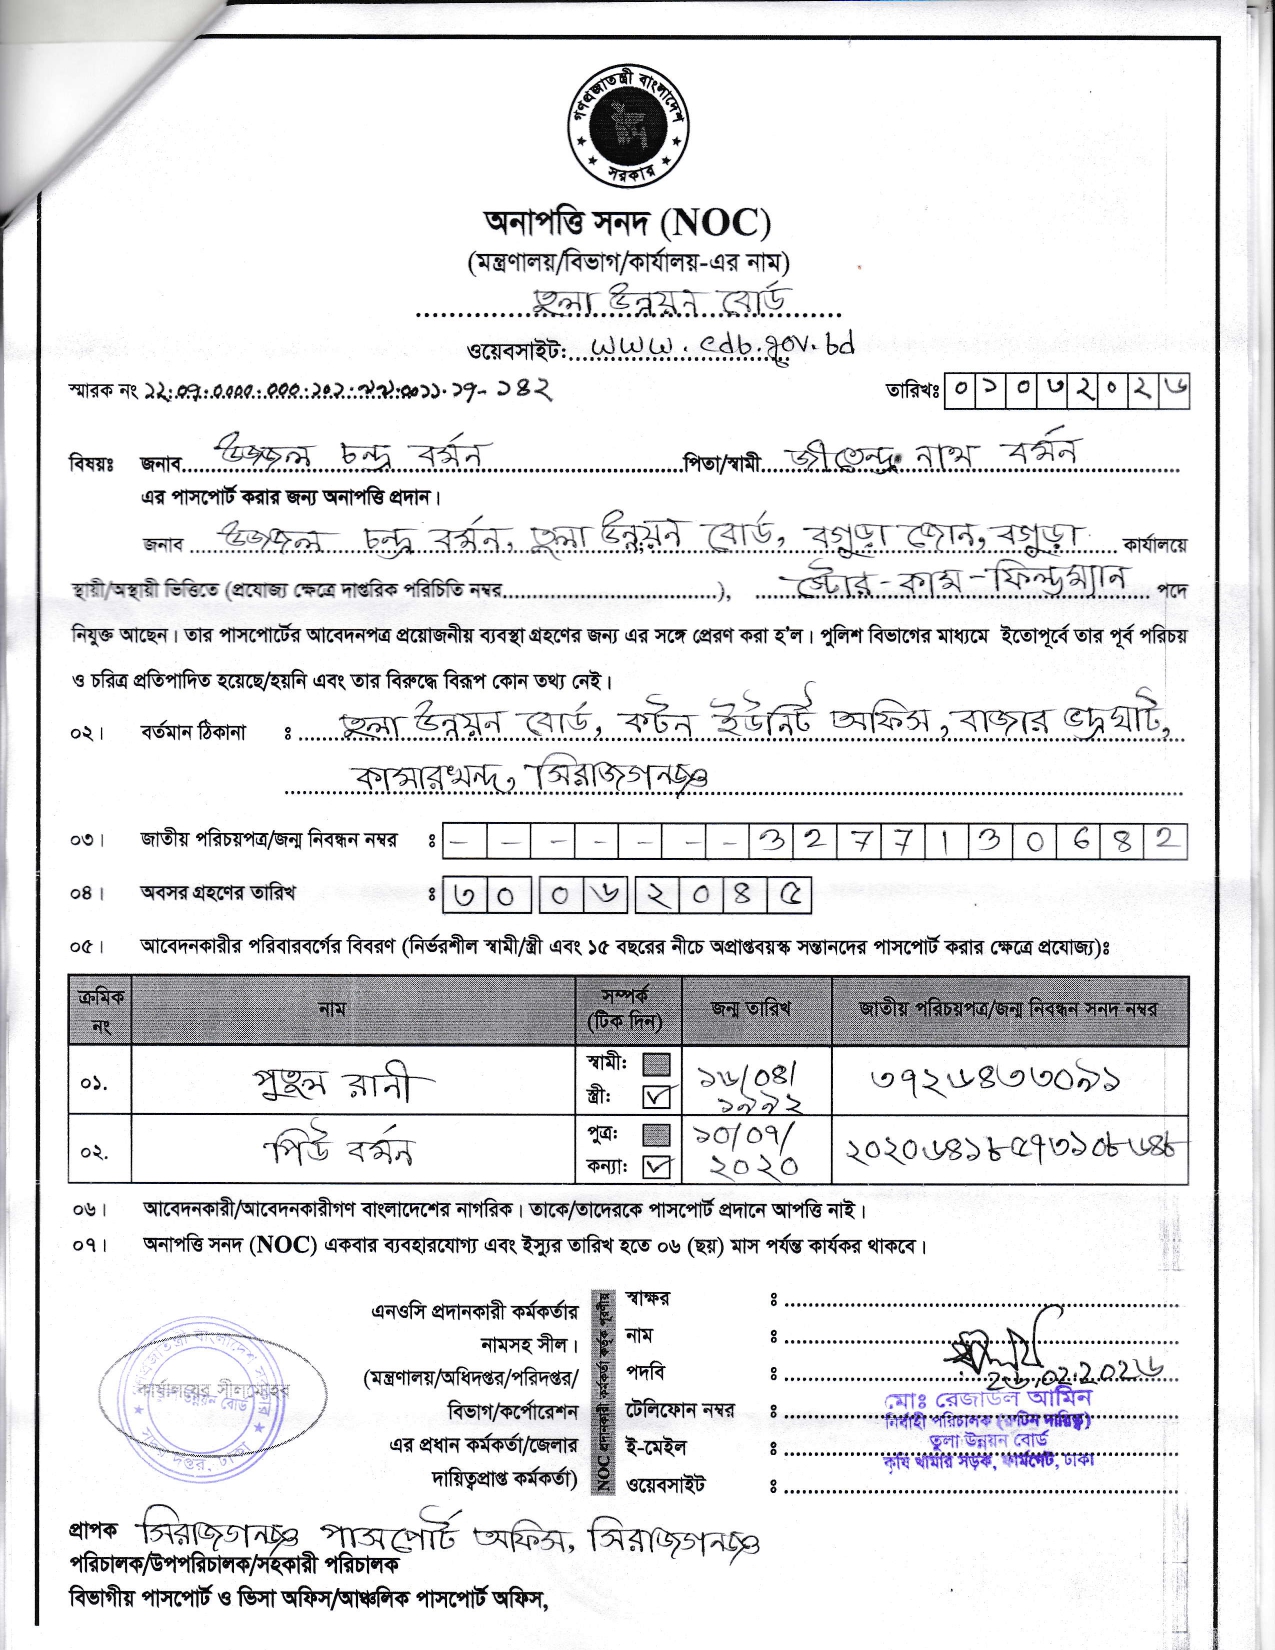 গণপ্রজাতন্ত্রী বাংলাদেশ
সরকার
অনাপত্তি সনদ (NOC)
(মন্ত্রণালয়/বিভাগ/কার্যালয়-এর নাম)
তুলা উন্নয়ন বোর্ড
ওয়েবসাইট: www.cdb.gov.bd
স্মারক নং ১৪২ তারিখঃ ০১০৩২০২৬
বিষয়ঃ জনাব উজ্জল চন্দ্র বর্মন পিতা/স্বামী জীতেন্দ্র নাথ বর্মন
এর পাসপোর্ট করার জন্য অনাপত্তি প্রদান।
জনাব উজ্জল চন্দ্র বর্মন, তুলা উন্নয়ন বোর্ড, বগুড়া জোন, বগুড়া কার্যালয়ে
স্থায়ী/অস্থায়ী ভিত্তিতে (প্রযোজ্য ক্ষেত্রে দাপ্তরিক পরিচিতি নম্বর), স্টোর-কাম-ফিল্ডম্যান পদে
নিযুক্ত আছেন। তার পাসপোর্টের আবেদনপত্র প্রয়োজনীয় ব্যবস্থা গ্রহণের জন্য এর সঙ্গে প্রেরণ করা হ'ল। পুলিশ বিভাগের মাধ্যমে ইতোপূর্বে তার পূর্ব পরিচয়
ও চরিত্র প্রতিপাদিত হয়েছে/হয়নি এবং তার বিরুদ্ধে বিরূপ কোন তথ্য নেই।
০২। বর্তমান ঠিকানা ঃ তুলা উন্নয়ন বোর্ড, কটন ইউনিট অফিস, বাজার ভদ্রঘাট,
কামারখন্দ, সিরাজগনজ
০৩। জাতীয় পরিচয়পত্র/জন্ম নিবন্ধন নম্বর ঃ - - - - - - - 3277130682
০৪। অবসর গ্রহণের তারিখ ঃ ৩০ ০৬ ২০৪৫
০৫। আবেদনকারীর পরিবারবর্গের বিবরণ (নির্ভরশীল স্বামী/স্ত্রী এবং ১৫ বছরের নীচে অপ্রাপ্তবয়স্ক সন্তানদের পাসপোর্ট করার ক্ষেত্রে প্রযোজ্য)ঃ
ক্রমিক নং নাম সম্পর্ক (টিক দিন) জন্ম তারিখ জাতীয় পরিচয়পত্র/জন্ম নিবন্ধন সনদ নম্বর
০১. পুতুল রানী স্বামী: স্ত্রী: ১৬/০৪/১৯৯২ ৩৭২৬৪৩৩০৯১
০২. পিউ বর্মন পুত্র: কন্যা: ১০/০৭/২০২০ ২০২০৬৪১৮৫৭৩১০৮৬৪৮
০৬। আবেদনকারী/আবেদনকারীগণ বাংলাদেশের নাগরিক। তাকে/তাদেরকে পাসপোর্ট প্রদানে আপত্তি নাই।
০৭। অনাপত্তি সনদ (NOC) একবার ব্যবহারযোগ্য এবং ইস্যুর তারিখ হতে ০৬ (ছয়) মাস পর্যন্ত কার্যকর থাকবে।
এনওসি প্রদানকারী কর্মকর্তার
নামসহ সীল।
(মন্ত্রণালয়/অধিদপ্তর/পরিদপ্তর/
বিভাগ/কর্পোরেশন
এর প্রধান কর্মকর্তা/জেলার
দায়িত্বপ্রাপ্ত কর্মকর্তা)
NOC প্রদানকারী কর্মকর্তা কর্তৃক পূরণীয়
স্বাক্ষর ঃ
নাম ঃ
পদবি ঃ
টেলিফোন নম্বর ঃ
ই-মেইল ঃ
ওয়েবসাইট ঃ
26.02.2026
মোঃ রেজাউল আমিন
নির্বাহী পরিচালক (রুটিন দায়িত্ব)
তুলা উন্নয়ন বোর্ড
কৃষি খামার সড়ক, ফার্মগেট, ঢাকা
কার্যালয়ের সীলমোহর
গণপ্রজাতন্ত্রী বাংলাদেশ সরকার
তুলা উন্নয়ন বোর্ড
সদর দপ্তর, ঢাকা
প্রাপক সিরাজগনজ পাসপোর্ট অফিস, সিরাজগনজ
পরিচালক/উপপরিচালক/সহকারী পরিচালক
বিভাগীয় পাসপোর্ট ও ভিসা অফিস/আঞ্চলিক পাসপোর্ট অফিস,